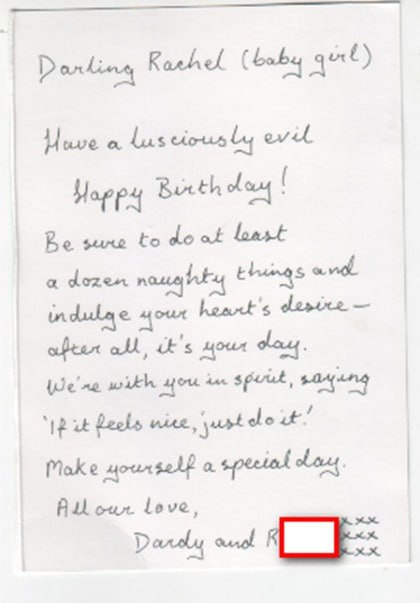 Darling Rachel (baby girl)
Have a lusciously evil
Happy Birthday!
Be sure to do at least
a dozen naughty things and
indulge your heart's desire—
after all, it's your day.
We're with you in spirit, saying
'If it feels nice, just do it!'
Make yourself a special day.
All our love,
Dardy and R xxx
xxx
xxx